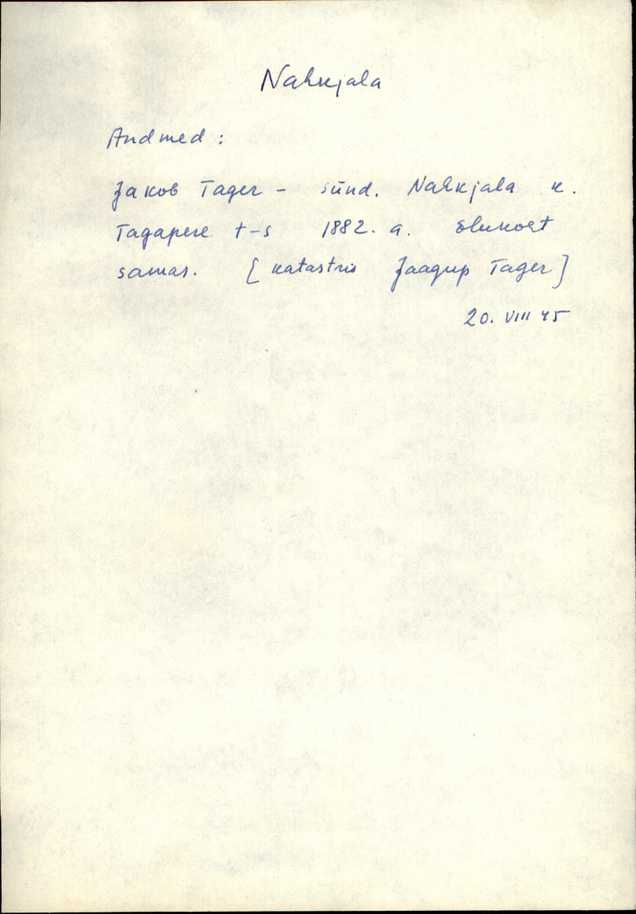 Nahkjala
Andmed :
Jakob Tager - sünd. Nahkjala k.
Tagapere t-s 1882. a. Elukoht
samas. [katastris Jaagup Tager]
20. VIII 45